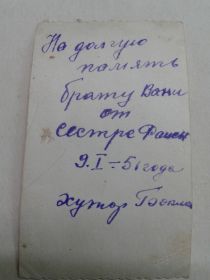 На долгую
память
брату Вани
от
сестре Фаисы
9.I-56 года
хутор